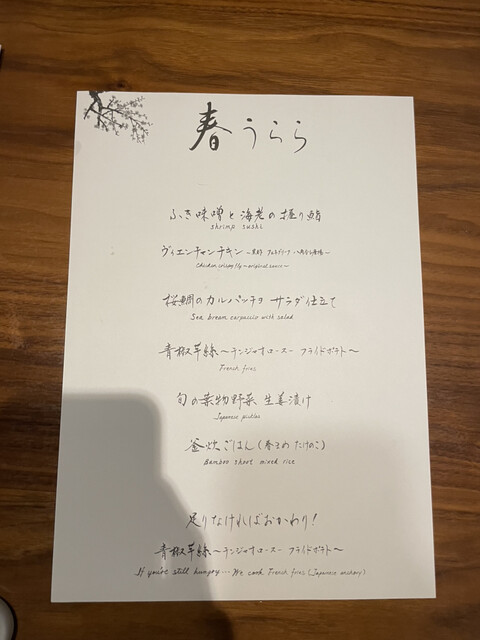 春うらら
ふき味噌と海老の握り鮨
Shrimp sushi
ヴィエンチャンチキン
Chicken crispy fry ~original sauce~
桜鯛のカルパッチョ サラダ仕立て
Sea bream carpaccio with salad
青椒羊絲～チンジャオロースー フライドポテト～
French fries
旬の葉物野菜 生姜漬け
Japanese pickles
釜炊ごはん(春るめ たけのこ)
Bamboo shoot mixed rice
足りなければおかわり!
青椒羊絲～チンジャオロースー フライドポテト～
If you're still hungry... We cook French fries (Japanese anchovy)